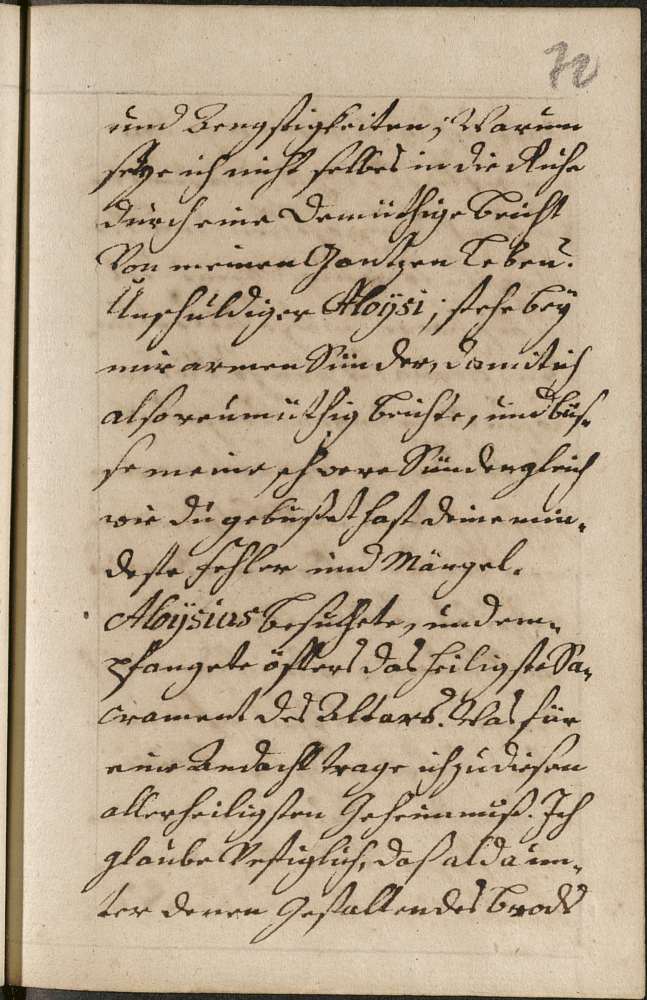 72
und Aengstigkeiten; Warum
setze ich nicht selbes in die Ruhe
durch eine Demüthige beicht
Von meinen Gantzen Leben?
Unschuldiger Aloÿsi; stehe beÿ
mir armen Sünder, damit ich
also reumüthig beichte, und büs„
se meine schwere Sünden gleich
wie du gebüsset hast deine min„
deste Fehler und Mängel.
Aloÿsius besuchete, und em„
pfangete öffters das heiligste Sa„
crament des Altars. Was für
eine Andacht trage ich zu diesen
allerheiligsten Geheimnuß. Ich
glaube Vestiglich, daß alda un„
ter denen Gestalten des brods